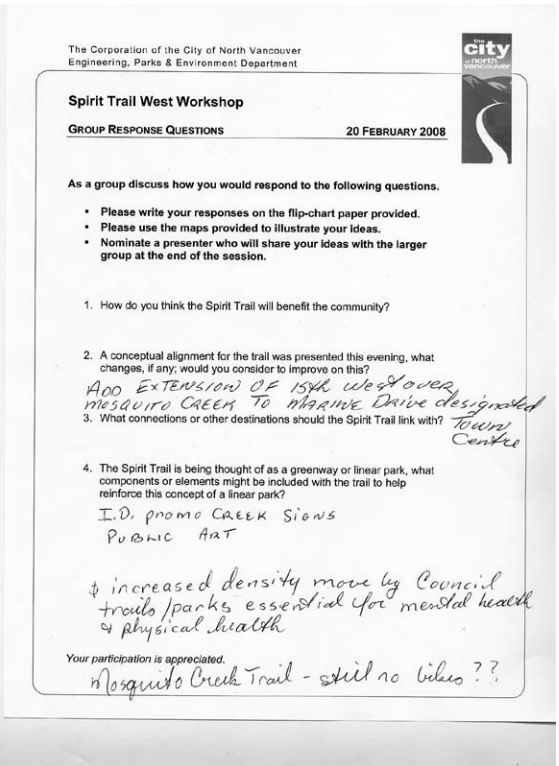 The Corporation of the City of North Vancouver
Engineering, Parks & Environment Department
the
city
of north
vancouver
Spirit Trail West Workshop
GROUP RESPONSE QUESTIONS 20 FEBRUARY 2008
As a group discuss how you would respond to the following questions.
▪ Please write your responses on the flip-chart paper provided.
▪ Please use the maps provided to illustrate your ideas.
▪ Nominate a presenter who will share your ideas with the larger
group at the end of the session.
1. How do you think the Spirit Trail will benefit the community?
2. A conceptual alignment for the trail was presented this evening, what
changes, if any; would you consider to improve on this?
ADD EXTENSION OF 15th West over
MOSQUITO CREEK TO MARINE DRIVE designated
3. What connections or other destinations should the Spirit Trail link with?
Town
Centre
4. The Spirit Trail is being thought of as a greenway or linear park, what
components or elements might be included with the trail to help
reinforce this concept of a linear park?
I.D. promo CREEK SIGNS
PUBLIC ART
increased density move by Council
trails/parks essential for mental health
& physical health
Your participation is appreciated.
Mosquito Creek Trail - still no bikes??